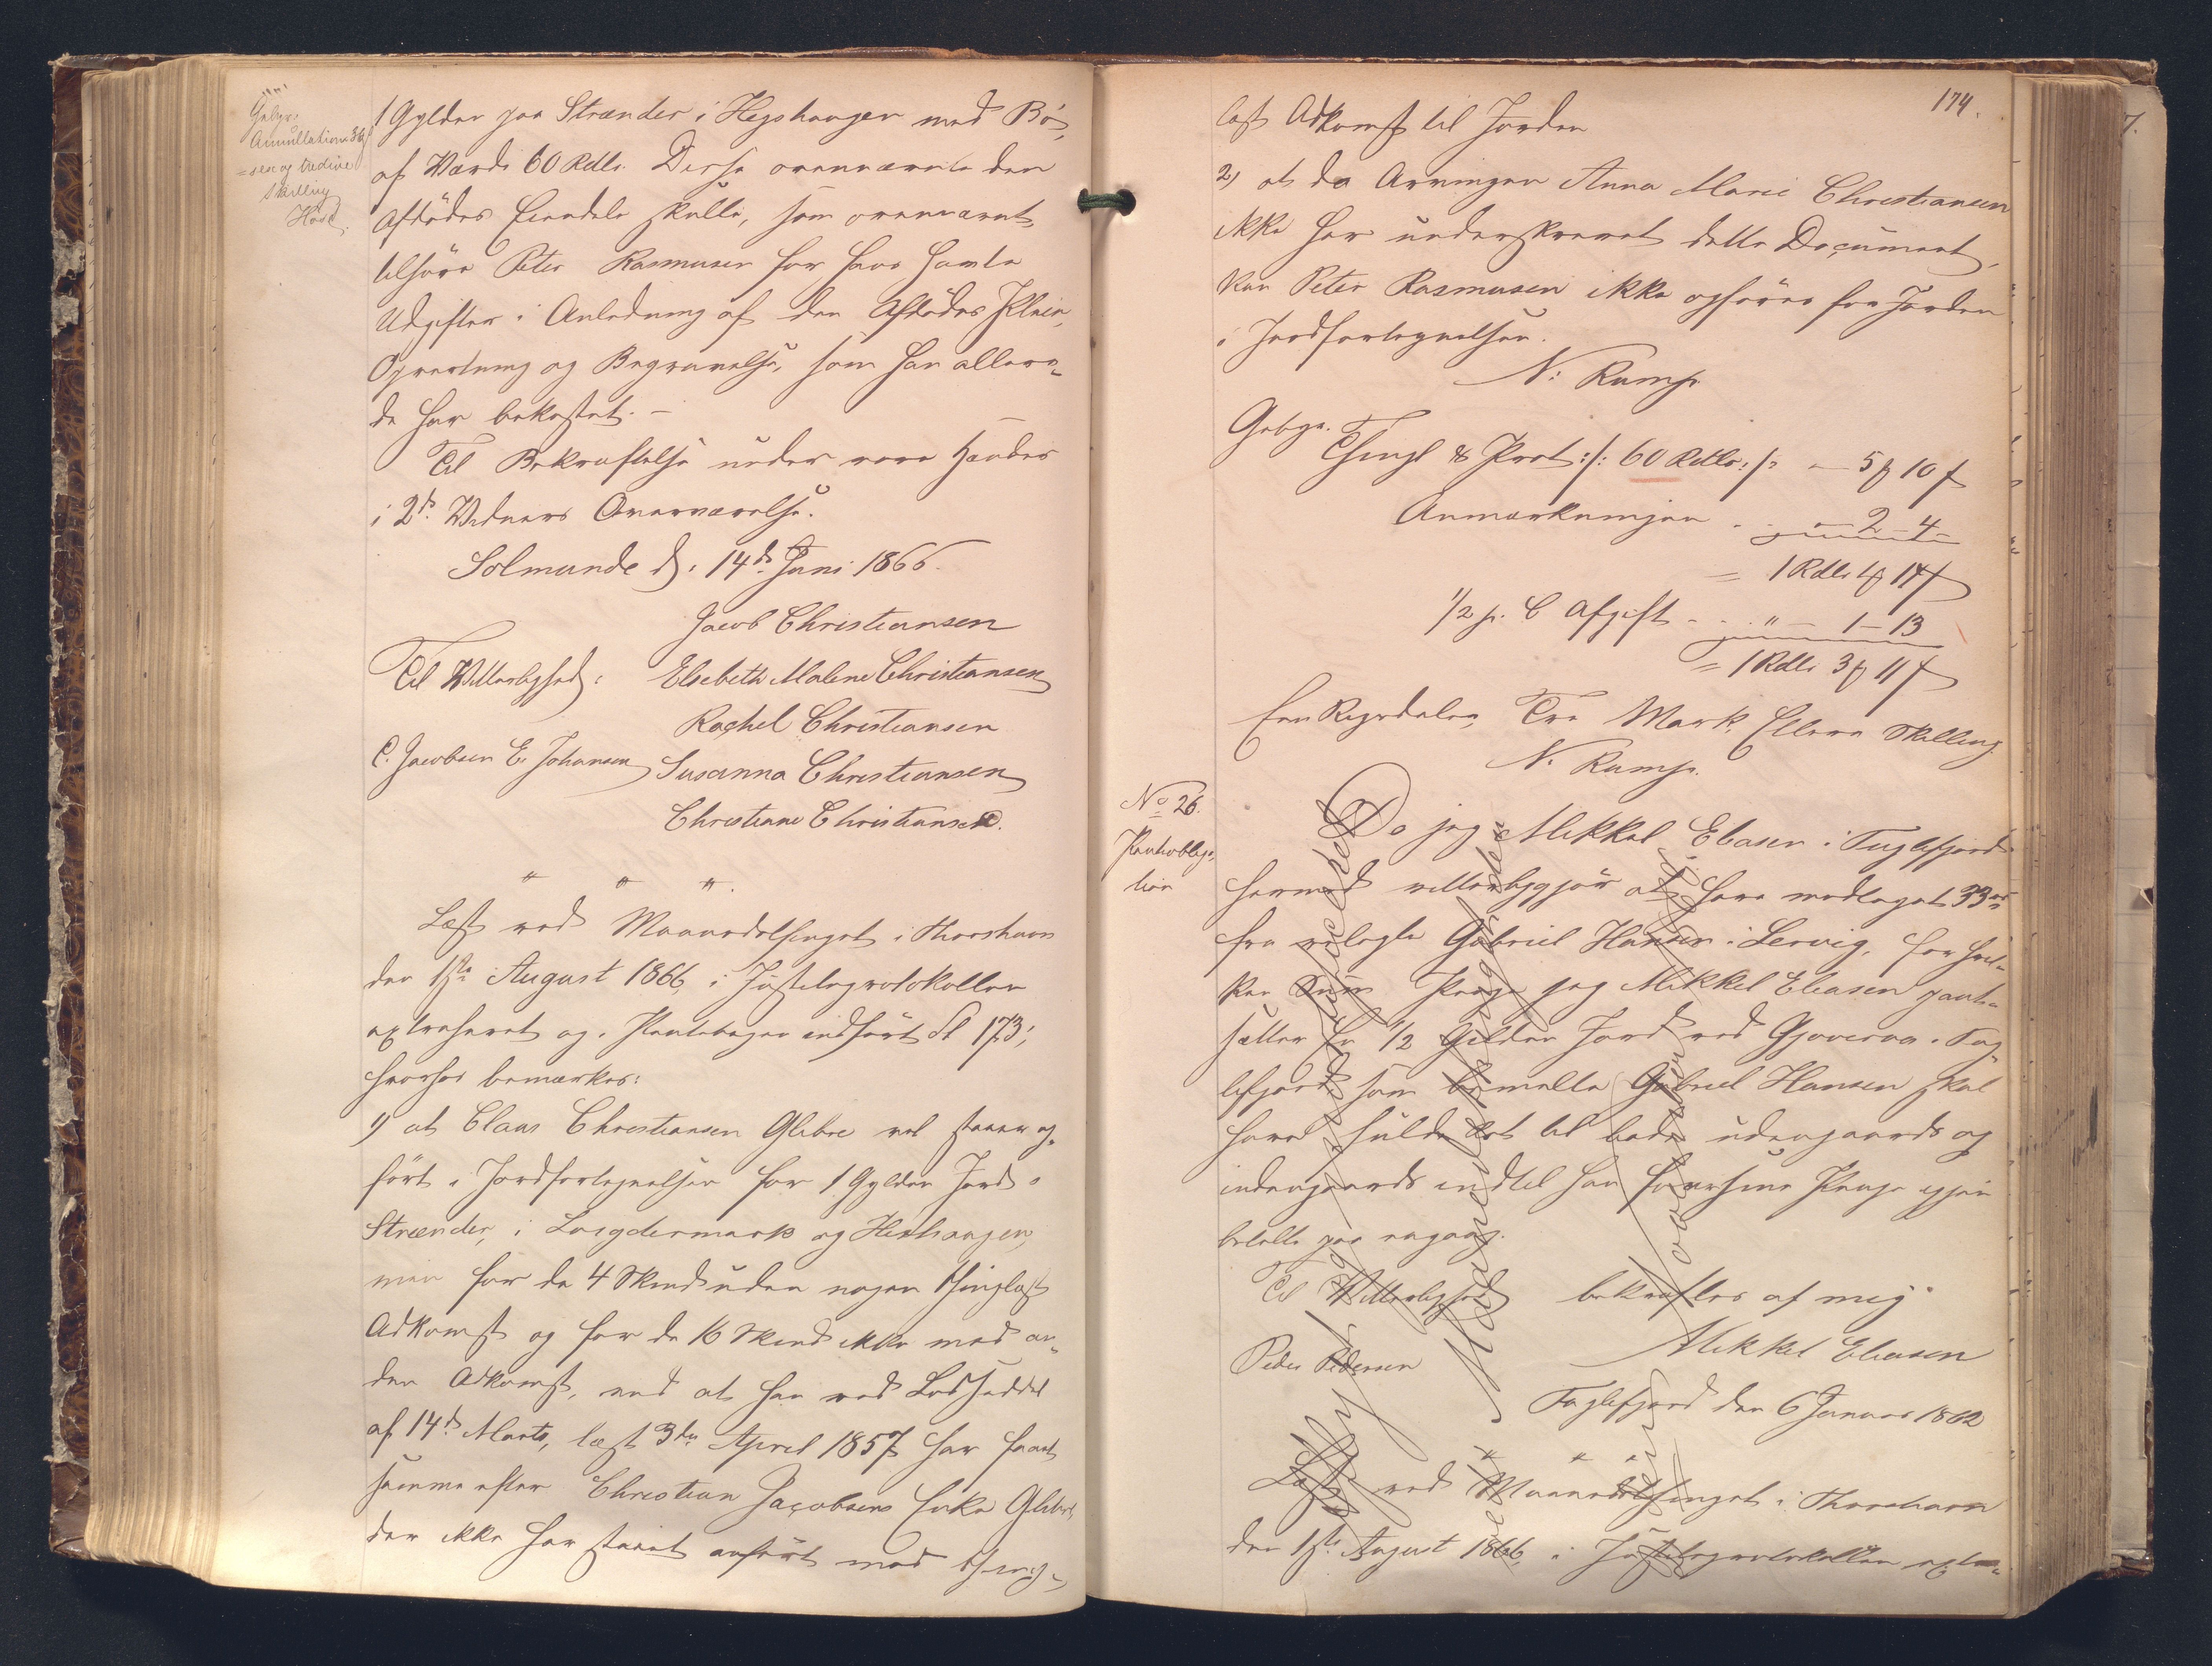 Gebyr
Annullation 36
sex og tredive
Skilling
1 Gylden paa Strænder i Hegshaugen med Bö,
af Værdi 60 Rdlr. Disse ovennævnte den
Afdödes Eiendele skulle, som ovennævnt,
tilhöre Peter Rasmusen for hans havte
Udgifter i Anledning af den Afdödes Pleie,
Opvartning og Begravelse, som han allere-
de har bekostet. –
Til Bekræftelse under vore Hænder
i 2de Vidners Overværelse.
Solmunde d. 14de Juni 1866.
Jacob Christiansen
Til Vitterlighed: Elsebeth Malene Christiansen
Rachel Christiansen
C. Jacobsen E. Johansen Susanna Christiansen
Christiane Christiansen.
" " "
Læst ved Maanedsthinget i Thorshavn
den 1ste August 1866, i Justitsprotokollen
extraheret og i Pantebogen indfört Fol 173;
hvorhos bemærkes:
1) at Claus Christiansen Glibre vel staaer op-
fört i Jordfortegnelsen for 1 Gylden Jord i
Strænder, i Lorgdermark og Heshaugen,
men for de 4 Skind uden nogen thinglæst
Adkomst og for de 16 Skind ikke med an-
den Adkomst, end at han ved Lodseddel
af 14de Marts, læst 3die April 1857 har faaet
samme efter Christian Jacobsens Enke Glibre,
der ikke har staaet anfört med thing-
174.
læst Adkomst til Jorden
2) at da Arvingen Anna Marie Christiansen
ikke har underskrevet dette Document,
kan Peter Rasmusen ikke opföres for Jorden
i Jordfortegnelsen.
N. Rump
Gebyr.
Thingl & Prot: /: 60 Rdlr :/ – 5 ß 10 ſ
Anmærkningen . . – 2 – 4 –
= 1 Rdlr 1 ß 14 ſ
1/2 p. C Afgift - . . " – 1 – 13
= 1 Rdlr 3 ß 11 ſ
Een Rigsdaler, Tre Mark, Elleve Skilling.
N. Rump.
No 26.
Pantobliga-
tion
Da jeg Mikkel Eliasen i Fuglefjord
hermed vitterliggjör at have modtaget 33
fra velagte Gabriel Hansen i Lervig, for hvil-
ken Sum Penge jeg Mikkel Eliasen pant-
sætter 1/2 Gylden Jord ved Gjoveraa i Fug-
lefjord som bemelte Gabriel Hansen skal
have fulde Ret til bade udengaards og
indengaards indtil han faaer sine Penge igjen
betalte paa engang.
Til Vitterlighed bekræftes af mig
Mikkel Eliasen
Peder Pedersen
Fuglefjord den 6 Januar 1862
" " "
Læst ved Maanedsthinget i Thorshavn
den 1ste August 1866, i Justitsprotokollen extra-